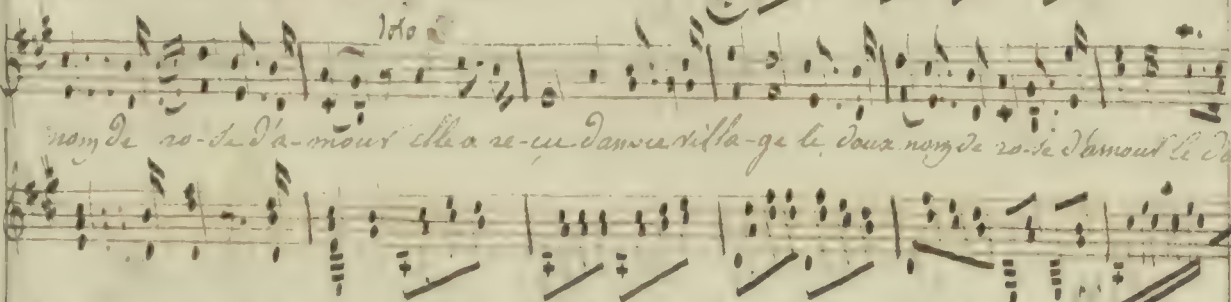 Solo
nom de ro-se d'a-mour elle a re-cu dans ce villa-ge le doux nom de ro-se d'amour le do